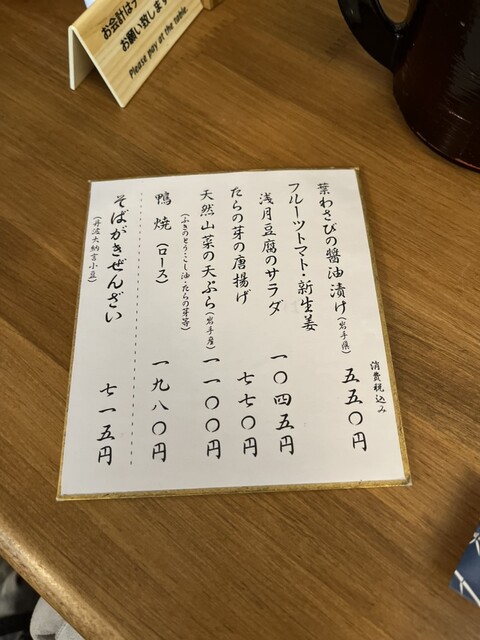 お会計はテ
お願い致します
Please pay at the table.
消費税込み
葉わさびの醤油漬け(岩手県) 五五〇円
フルーツトマト・新生姜
浅月豆腐のサラダ 一〇四五円
たらの芽の唐揚げ 七七〇円
天然山菜の天ぷら(岩手産) 一一〇〇円
(ふきのとう・こし油・たらの芽等)
鴨焼(ロース) 一九八〇円
そばがきぜんざい 七一五円
(丹波大納言小豆)